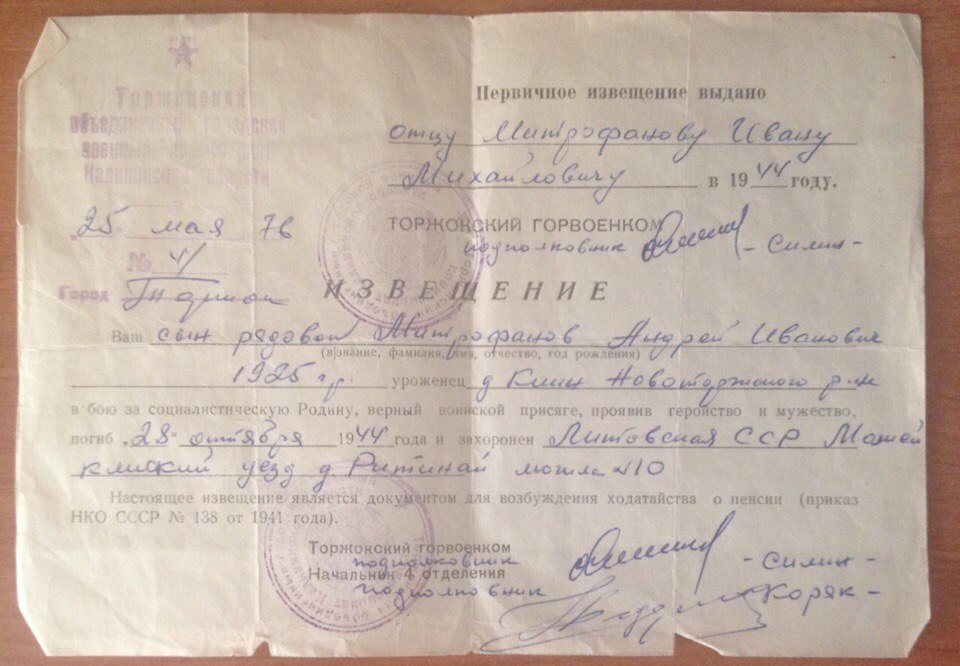 Торжокский
объединенный городской
военный комиссариат
Калининской области
25 мая 76
№ 41
Город Торжок
Первичное извещение выдано
отцу Митрофанову Ивану
Михайловичу в 1944 году.
ТОРЖОКСКИЙ ГОРВОЕНКОМ
подполковник - Силин -
ИЗВЕЩЕНИЕ
Ваш сын рядовой Митрофанов Андрей Иванович
(в)звание, фамилия, имя, отчество, год рождения)
1925 гр. уроженец д Клин Новоторжского р-н
в бою за социалистическую Родину, верный воинской присяге, проявив геройство и мужество,
погиб 28 октября 1944 года и захоронен Литовская ССР Мажей
кляйский уезд д Ритинай могила №10
Настоящее извещение является документом для возбуждения ходатайства о пенсии (приказ
НКО СССР № 138 от 1941 года).
Торжокский горвоенком
подполковник - Силин -
Начальник 4 отделения
подполковник - Коряк -